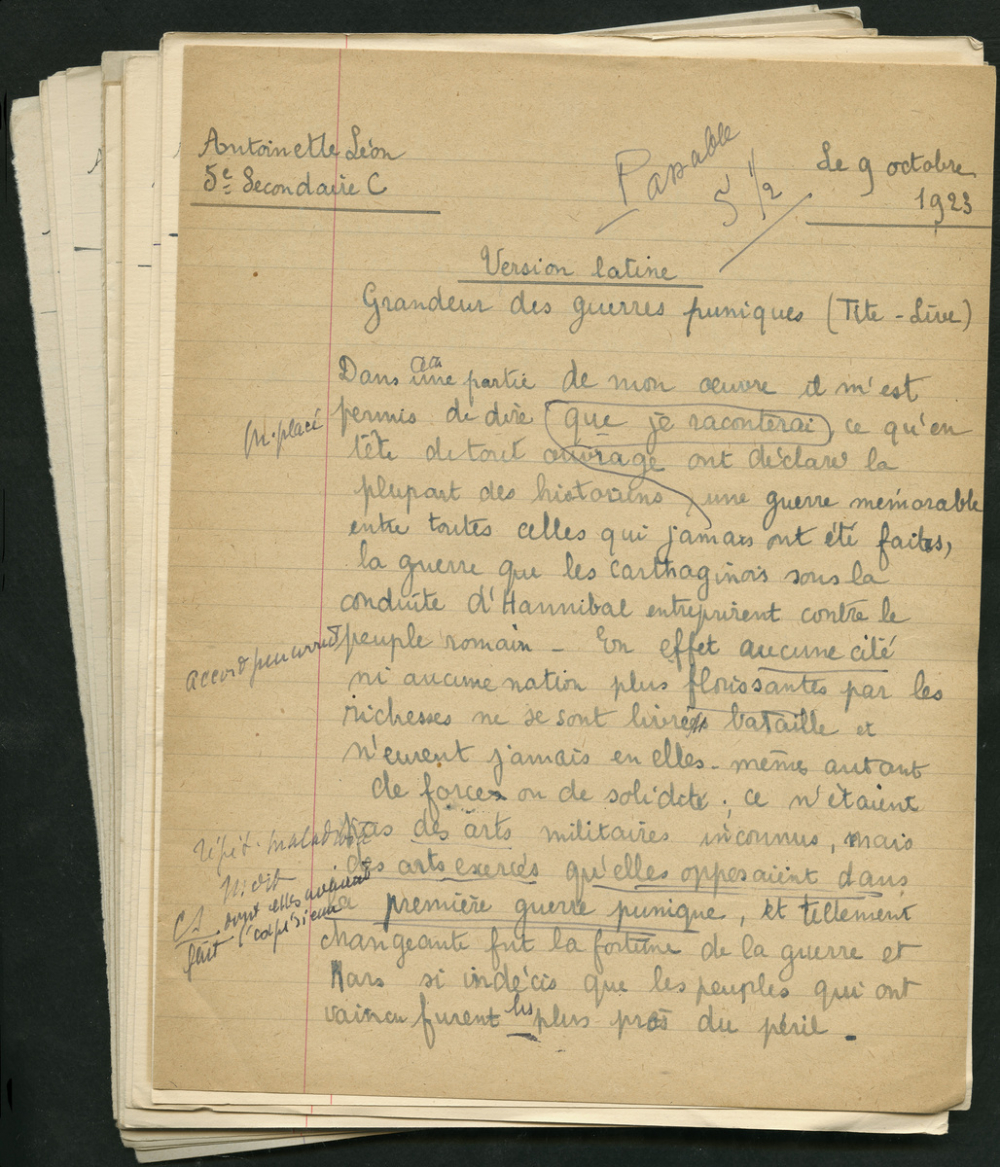 Antoinette Léon
5e Secondaire C
Passable
5 1/2
Le 9 octobre
1923
Version latine
Grandeur des guerres puniques (Tite-Live)
Dans une partie de mon œuvre il m'est
permis de dire que je raconterai, ce qu'en
tête de tout ouvrage ont déclaré la
plupart des historiens, une guerre mémorable
entre toutes celles qui jamais ont été faites,
la guerre que les Carthaginois sous la
conduite d'Hannibal entreprirent contre le
peuple romain - En effet aucune cité
ni aucune nation plus florissantes par les
richesses ne se sont livrées bataille et
n'eurent jamais en elles-mêmes autant
de forces ou de solidité ; ce n'étaient
pas des arts militaires inconnus, mais
des arts exercés qu'elles opposaient dans
la première guerre punique, et tellement
changeante fut la fortune de la guerre et
Mars si indécis que les peuples qui ont
vaincu furent les plus près du péril.
m. placé
accord peu correct
répét. maladroite
dont elles avaient
fait l'expérience